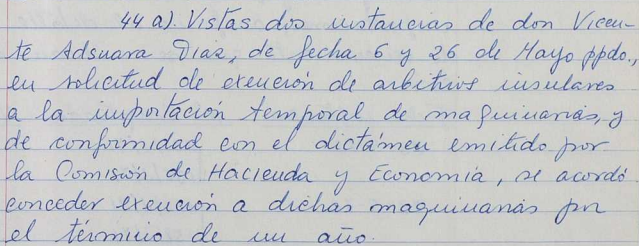 44 a). Vistas dos instancias de don Vicen-
te Adsuara Diaz, de fecha 6 y 26 de Mayo ppdo.,
en solicitud de exención de arbitrios insulares
a la importación temporal de maquinarias, y
de conformidad con el dictámen emitido por
la Comisión de Hacienda y Economía, se acordó
conceder exención a dichas maquinarias por
el término de un año.